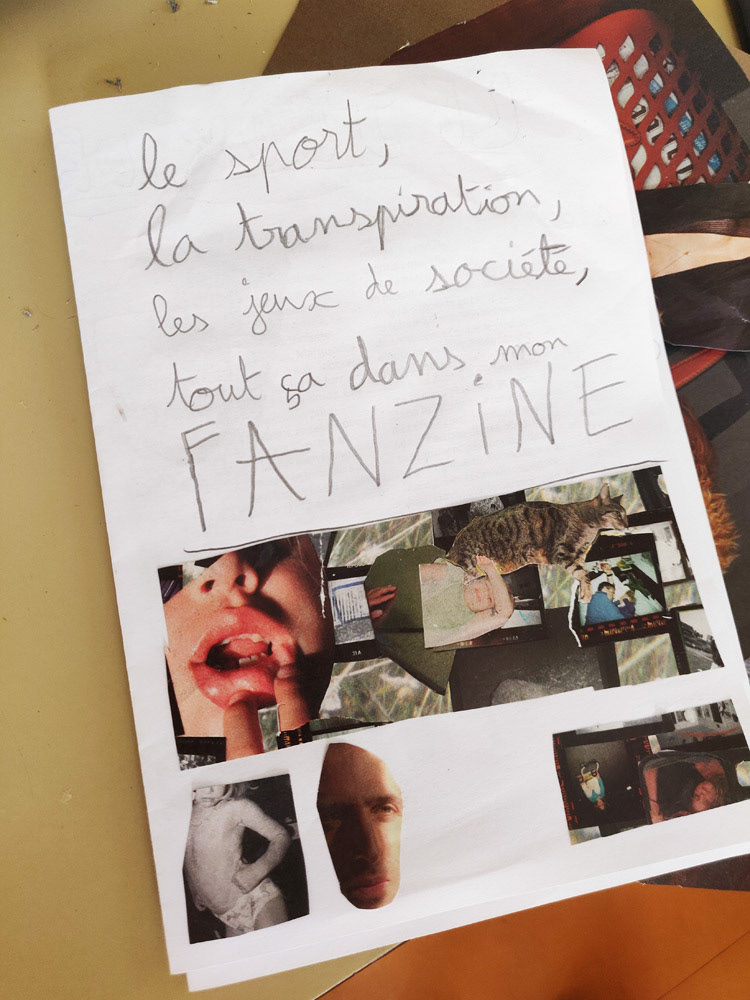 le sport,
la transpiration,
les jeux de société,
tout ça dans mon
FANZiNE